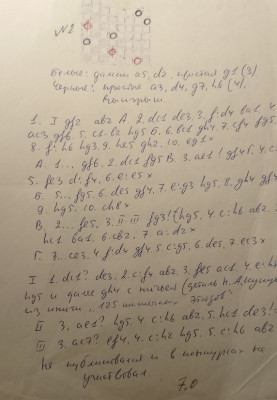 N 2
Белые: дамки a5, d2, простая g1 (3)
Черные: простые a3, d4, g7, h6 (4).
Выигрыш
1. I gf2 ab2 A 2. dc1 de3, 3. f:d4 ba1 4.
ac3 gf6 5. c1-b2 hg5 Б. 6. b2-c1 gh4 7. ef4 fg5
8. f:h6 hg3 9. he5 gh2. 10. eg1×
A. 1... gf6, 2. dc1 fg5 B 3. ae1! gf4 Г, 4. c
5. fe3 d:f4, 6. e:e5×
Б. 5... fg5, 6. de5 gf4, 7. e:g3 hg5, 8. gh4 gf4
9. hg5, 10. ch8×
В. 2... fe5, 3. II-III fg3! (hg5, 4. c:h6 ab2,
hc1 ba1, 6. cb2, 7. a:d2×
Г. 3... ce3, 4. f:d4 gf4 5. c:g5, 6. de5, 7. ec3×
I 1. dc1? de3, 2. c:f4 ab2, 3. fe5 ac1, 4. e:h
hg5 и далее gh4 с ничьей
из книги „125 шашечных этюдов"
II 3. ae1? hg5, 4. c:h6 ab2, 5. hc1 de3!
III 3. ac7? ef4, 4. c:h2 hg5, 5. c:h6 ab2
Не публиковался и в конкурсах не
участвовал.
7,0